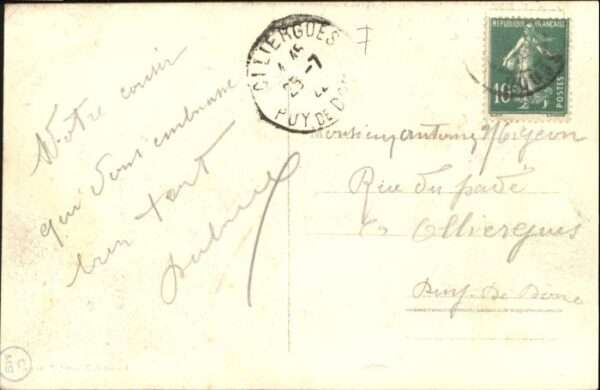 Votre cousin
qui vous embrasse
bien fort
OLLIERGUES
4 45
25 -7
PUY DE DOME
RÉPUBLIQUE FRANÇAISE
10
POSTES
Monsieur antony Migeon
Rue du pavé
Olliergues
Puy-de-Dome